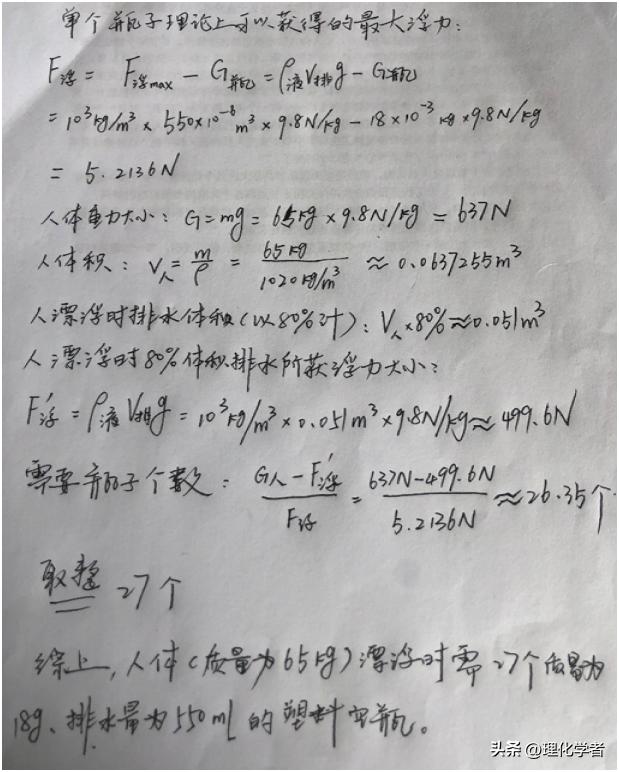 单个瓶子理论上可以获得的最大浮力:
F浮 = F浮max - G瓶 = ρ液V排g - G瓶
= 10³kg/m³ × 550×10⁻⁶m³ × 9.8N/kg - 18×10⁻³kg×9.8N/kg
= 5.2136N
人体重力大小: G=mg=65kg×9.8N/kg=637N
人体积: V人=m/ρ=65kg/1020kg/m³≈0.0637255m³
人漂浮时排水体积(以80%计): V人×80%≈0.051m³
人漂浮时80%体积排水所获浮力大小:
F′浮=ρ液V排g=10³kg/m³×0.051m³×9.8N/kg≈499.6N
需要瓶子个数: G人-F′浮/F浮=637N-499.6N/5.2136N≈26.35个
取整 27个
综上,人体(质量为65kg)漂浮时需27个质量为
18g、排水量为550mL的塑料空瓶。
头条 @理化学者